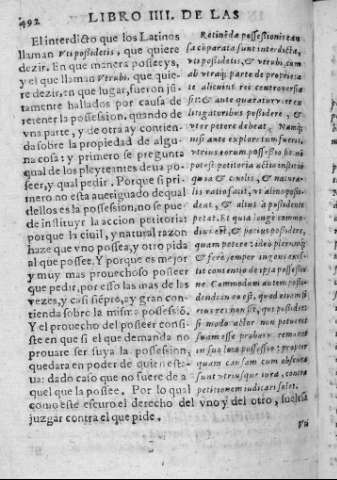 492
LIBRO IIII. DE LAS
El interdicto que los Latinos
llaman Vti possidetis, que quiere
dezir. En que manera posseeys,
y el que llaman Vtrubi. que quie-
re dezir, en que lugar, fueron jũ-
tamente hallados por causa de
retener la possession, quando de
vna parte, y de otra ay contien-
da sobre la propiedad de algu-
na cosa: y primero se pregunta
qual de los pleyteantes deua po-
seer, y qual pedir. Porque si pri-
mero no esta aueriguado de qual
dellos es la possession, no se pue
de instituyr la accion petitoria
porque la ciuil, y natural razon
haze que vno possea, y otro pida
al que possee. Y porque es mejor
y muy mas prouechoso posseer
que pedir, por esso las mas de las
vezes, y casi siẽpre, ay gran con-
tienda sobre la misma possessiõ.
Y el prouecho del posseer consi-
ste en que si el que demanda no
prouare ser suya la possession,
quedara en poder de quien esta-
ua: dado caso que no fuere de a-
quel que la possee. Por lo qual
como este escuro el derecho del vno y del otro, suelese
juzgar contra el que pide.
Retinẽda possessionis cau
sa cõparata sunt interdicta,
vti possidetis, & vtrubi, cum
ab vtraq; parte de proprieta
te alicuius rei controuersia
sit: & ante quæratur vter ex
litigatoribus possidere, &
vter petere debeat. Namq;
nisi ante exploratum fuerit,
vtrius eorum possessio sit, nõ
potest petitoria actio institui
quia & ciuilis, & natura-
lis ratio facit, vt alius possi-
deat, & alius à possidente
petat. Et quia longè commo-
dius est, & potius possidere,
quam petere: ideo plerumq;
& ferè semper ingens exi-
stit contentio de ipsa possessio
ne. Commodum autem possi-
dendi in eo est, quod etiam si
eius res non sit, qui possidet
si modo actor non potuerit
suam esse probare, remanet
in suo loco possessio: propter
quam causam cum obscura
sunt vtriusque iura, contra
petitorem iudicari solet.
Vti